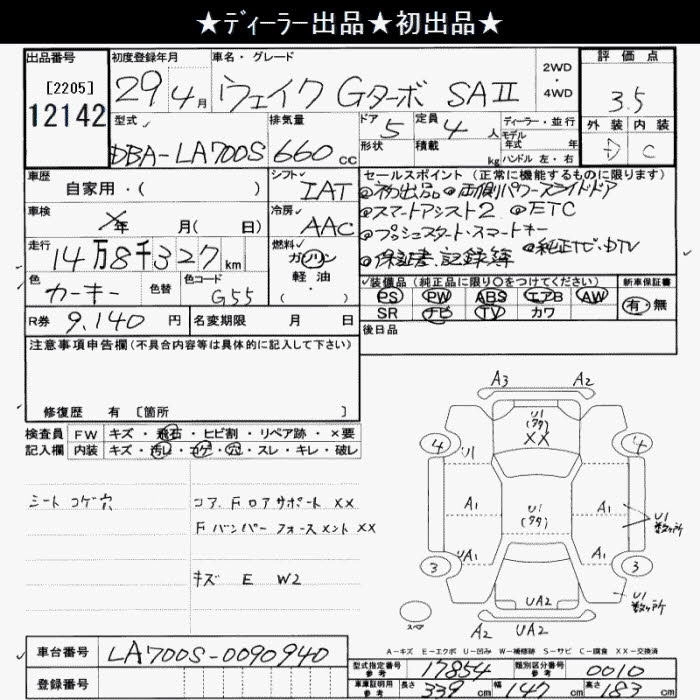 ★ディーラー出品★初出品★
出品番号
[2205]
12142
初度登録年月
29年 4月
車名・グレード
ウェイク Gターボ SAⅡ
2WD
・
4WD
評価点
3.5
外装 内装
D C
型式
DBA-LA700S
排気量
660cc
ドア 5
形状
定員 4人
積載 kg
ディーラー・並行
モデル
年式 年
ハンドル 左・右
車歴
自家用・( )
シフト
IAT
車検
✕年 月( 日)
冷房
AAC
走行
14万8千327km
燃料
ガソリン
軽・油
・( )
色
カーキー
色替
色コード
G55
R券 9,140円
名変期限 月 日
セールスポイント(正常に機能するものに限ります)
◎初出品 ◎両側パワースライドドア
◎スマートアシスト2 ◎ETC
◎プッシュスタート・スマートキー
◎保証書・記録簿 ◎純正ナビ・DTV
装備品(純正品に限り○をつけてください)
PS PW ABS エアB AW
SR ナビ TV カワ
新車保証書
有・無
後日品
注意事項申告欄(不具合内容等は具体的に記入して下さい)
修復歴 有 [箇所 ]
検査員
記入欄
FW キズ・飛石・ヒビ割・リペア跡・×要
内装 キズ・汚レ・コゲ・穴・スレ・キレ・破レ
シート コゲ穴
コア、Fロアサポート XX
Fバンパーフォースメント XX
キズ E W2
A3 A2
U1
(タタ)
XX
4 4
U1
A1 A1
U1
(タタ)
U1
数ヶ所
UA1 A1
3 3
UA2
U1
数ヶ所
スペア
A2 UA2
A-キズ E-エクボ U-凹み W-補修跡 S-サビ C-腐食 XX-交換済
車台番号 LA700S-0090940
登録番号
型式指定番号
参考
17854
類別区分番号
参考
0010
車庫証明用
参考
長さ 339cm 幅 147cm 高さ 183cm